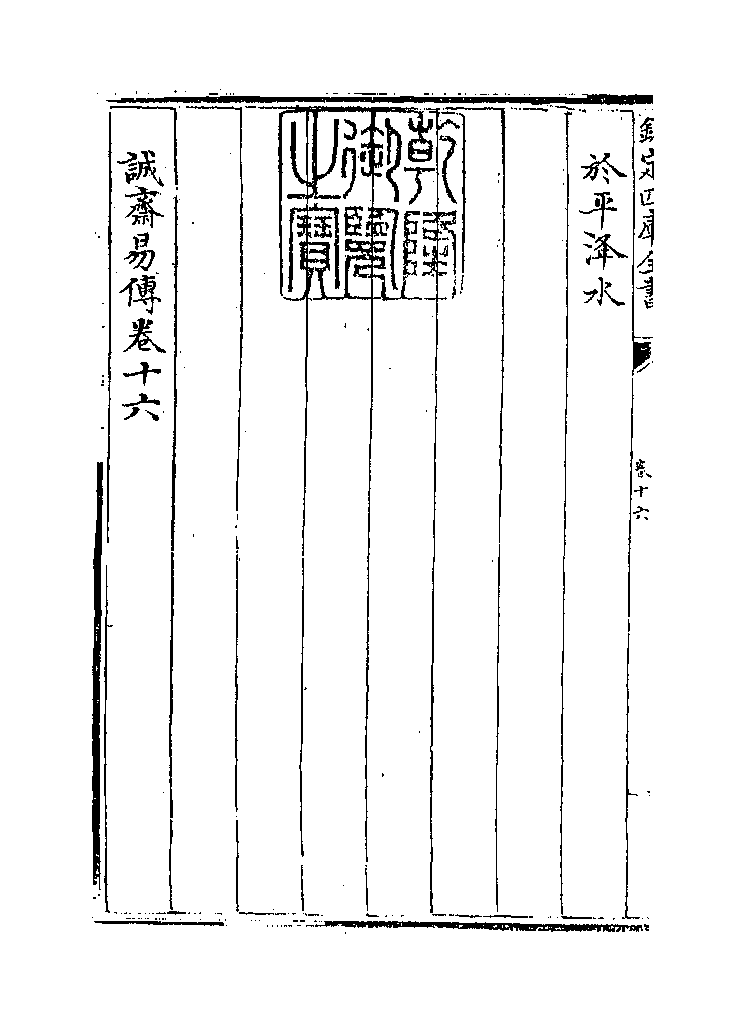 欽定四庫全書
卷十六
於平洚水
乾隆
御覽
之寶
誠齋易傳卷十六